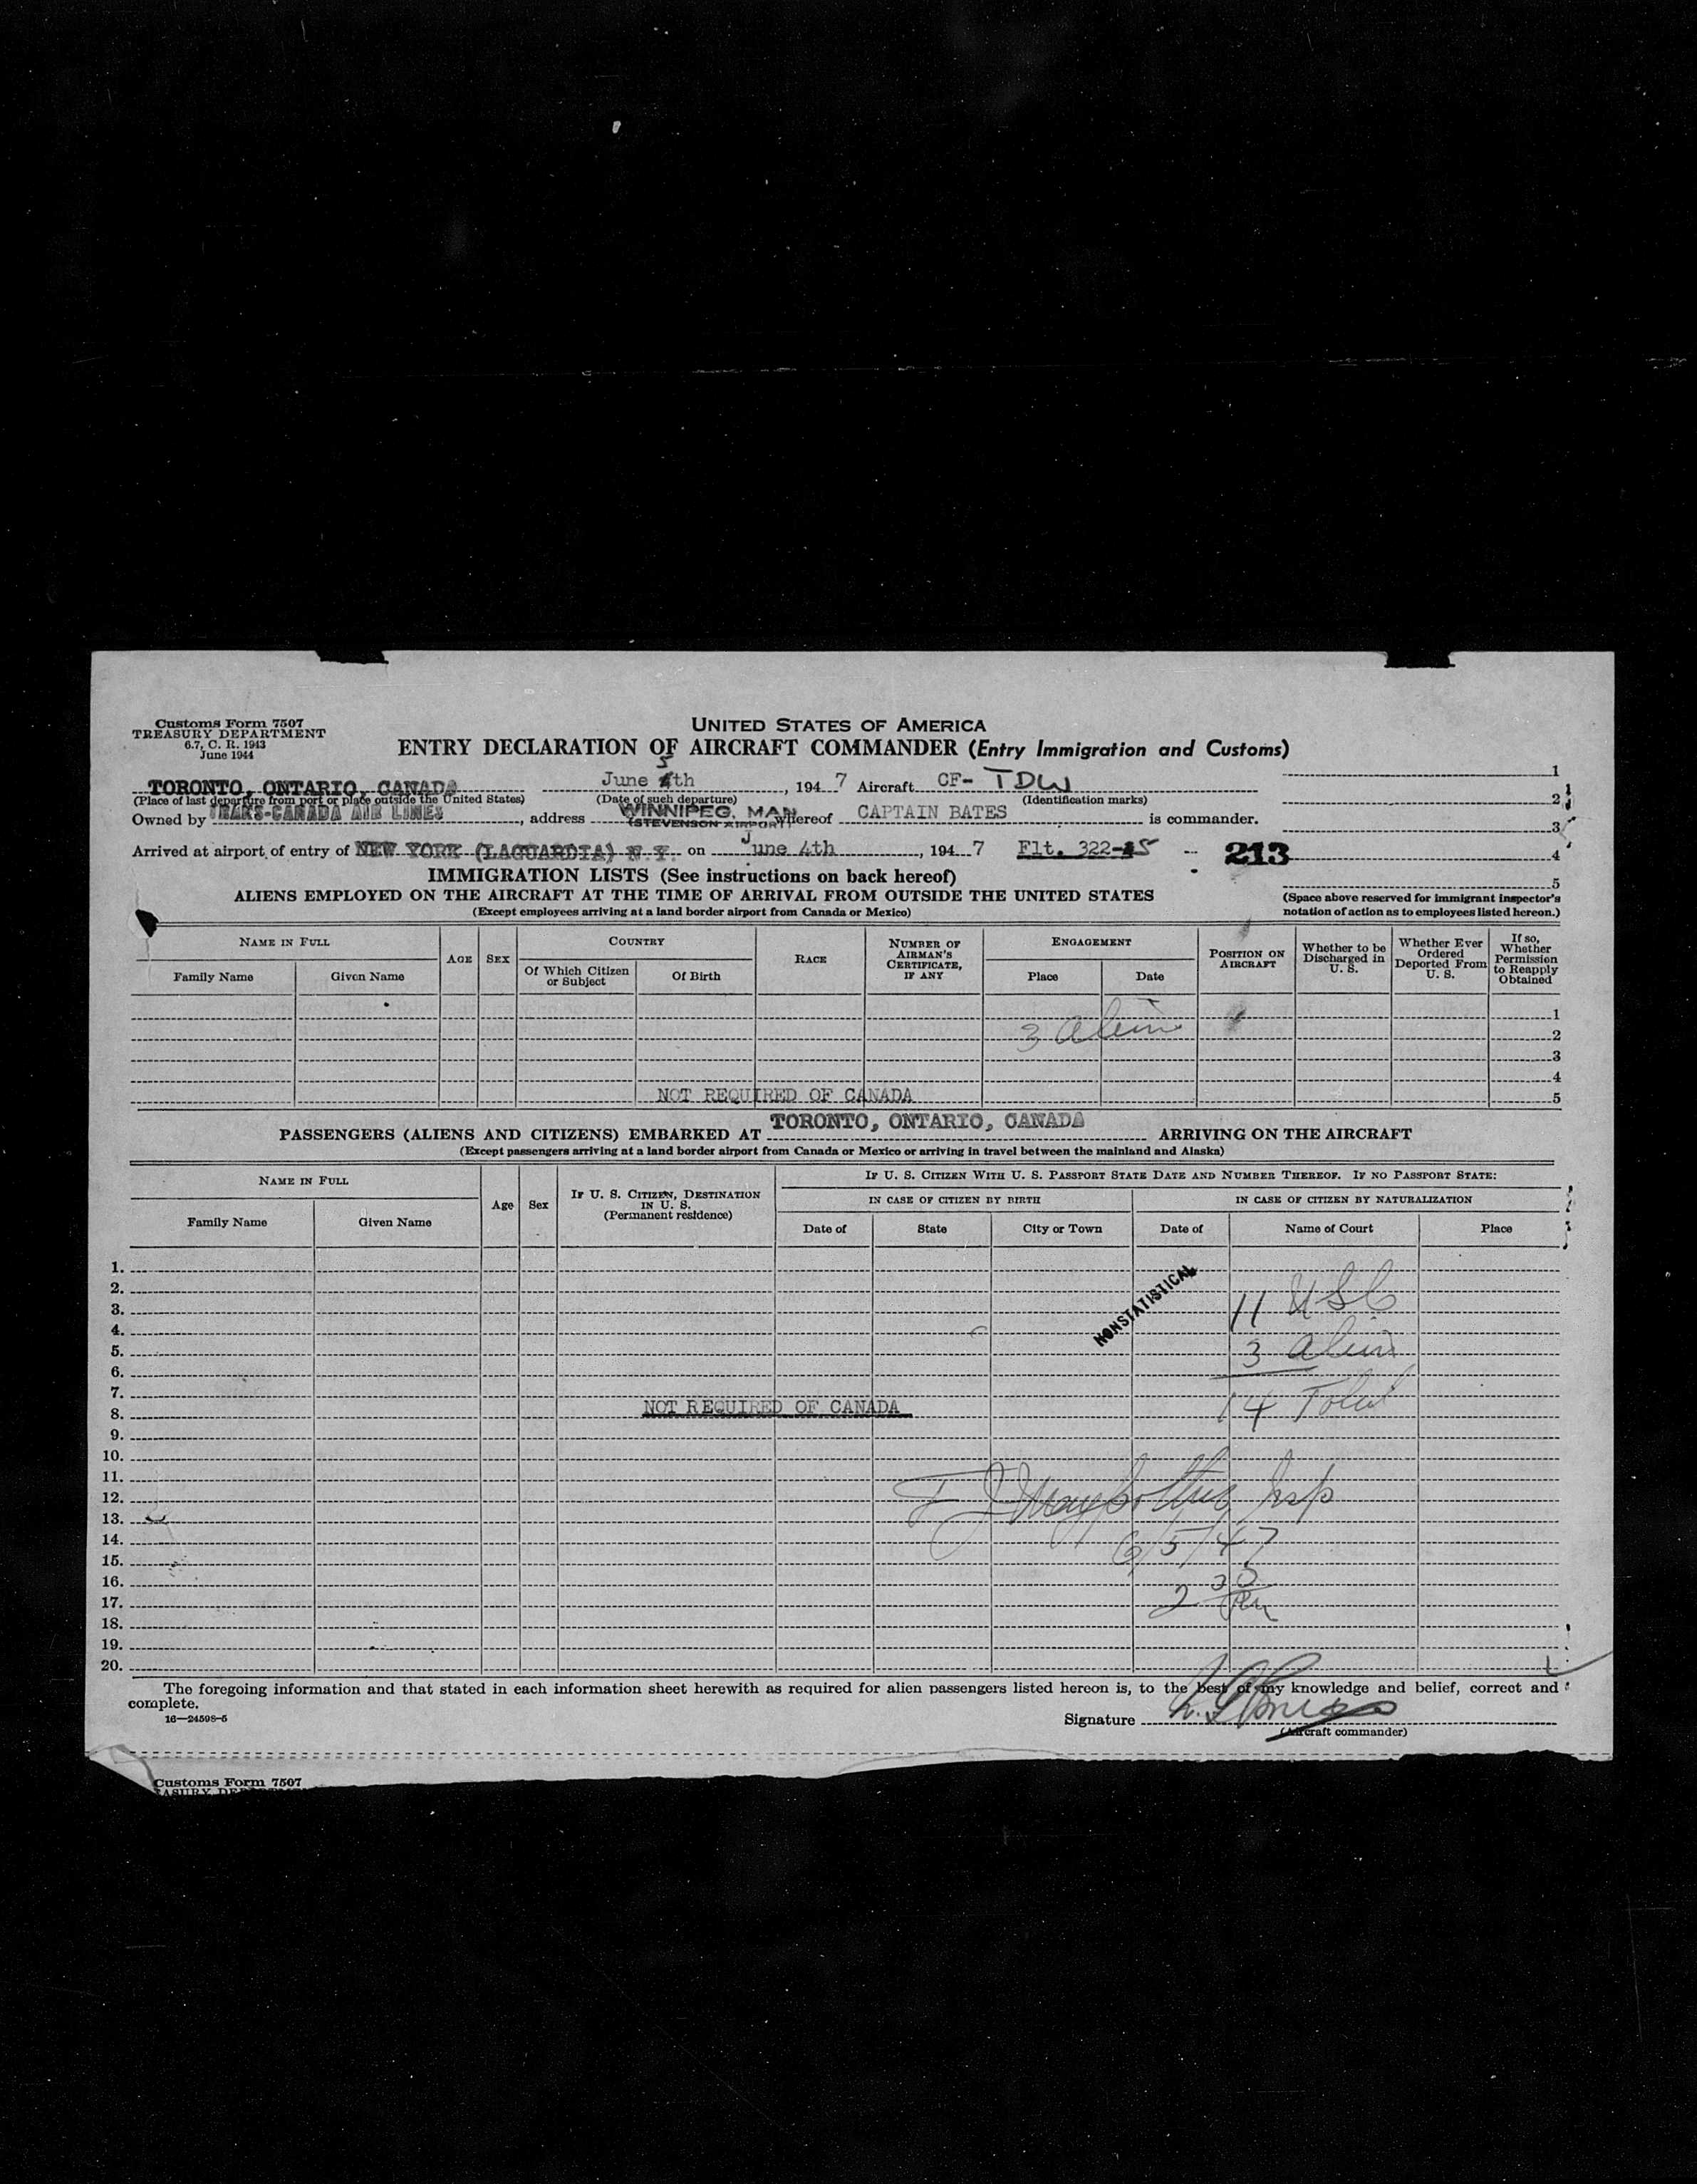 Customs Form 7507
TREASURY DEPARTMENT
6.7, C. R. 1943
June 1944
UNITED STATES OF AMERICA
ENTRY DECLARATION OF AIRCRAFT COMMANDER (Entry Immigration and Customs)
TORONTO, ONTARIO, CANADA June 5th, 1947 Aircraft CF- TDW 1
(Place of last departure from port or place outside the United States) (Date of such departure) (Identification marks) 2
Owned by TRANS-CANADA AIR LINES, address WINNIPEG, MAN (STEVENSON AIRPORT) whereof CAPTAIN BATES is commander. 3
Arrived at airport of entry of NEW YORK (LAGUARDIA) N. Y. on June 4th, 1947 Flt. 322-5 213 4
5
IMMIGRATION LISTS (See instructions on back hereof)
ALIENS EMPLOYED ON THE AIRCRAFT AT THE TIME OF ARRIVAL FROM OUTSIDE THE UNITED STATES
(Except employees arriving at a land border airport from Canada or Mexico)
(Space above reserved for immigrant inspector's
notation of action as to employees listed hereon.)
NAME IN FULL AGE SEX COUNTRY RACE NUMBER OF AIRMAN'S CERTIFICATE, IF ANY ENGAGEMENT POSITION ON AIRCRAFT Whether to be Discharged in U. S. Whether Ever Ordered Deported From U. S. If so, Whether Permission to Reapply Obtained
Family Name Given Name Of Which Citizen or Subject Of Birth Place Date
1
3 Alien 2
3
4
NOT REQUIRED OF CANADA 5
PASSENGERS (ALIENS AND CITIZENS) EMBARKED AT TORONTO, ONTARIO, CANADA ARRIVING ON THE AIRCRAFT
(Except passengers arriving at a land border airport from Canada or Mexico or arriving in travel between the mainland and Alaska)
NAME IN FULL Age Sex IF U. S. CITIZEN, DESTINATION IN U. S. (Permanent residence) IF U. S. CITIZEN WITH U. S. PASSPORT STATE DATE AND NUMBER THEREOF. IF NO PASSPORT STATE:
IN CASE OF CITIZEN BY BIRTH IN CASE OF CITIZEN BY NATURALIZATION
Family Name Given Name Date of State City or Town Date of Name of Court Place
1.
2. NONSTATISTICAL
3. 11 USC
4.
5. 3 Alien
6.
7.
8. NOT REQUIRED OF CANADA 14 Total
9.
10.
11.
12. Insp
13.
14. 6/5/47
15.
16.
17.
18.
19.
20.
The foregoing information and that stated in each information sheet herewith as required for alien passengers listed hereon is, to the best of my knowledge and belief, correct and
complete.
16—24598-5
Signature
(Aircraft commander)
Customs Form 7507